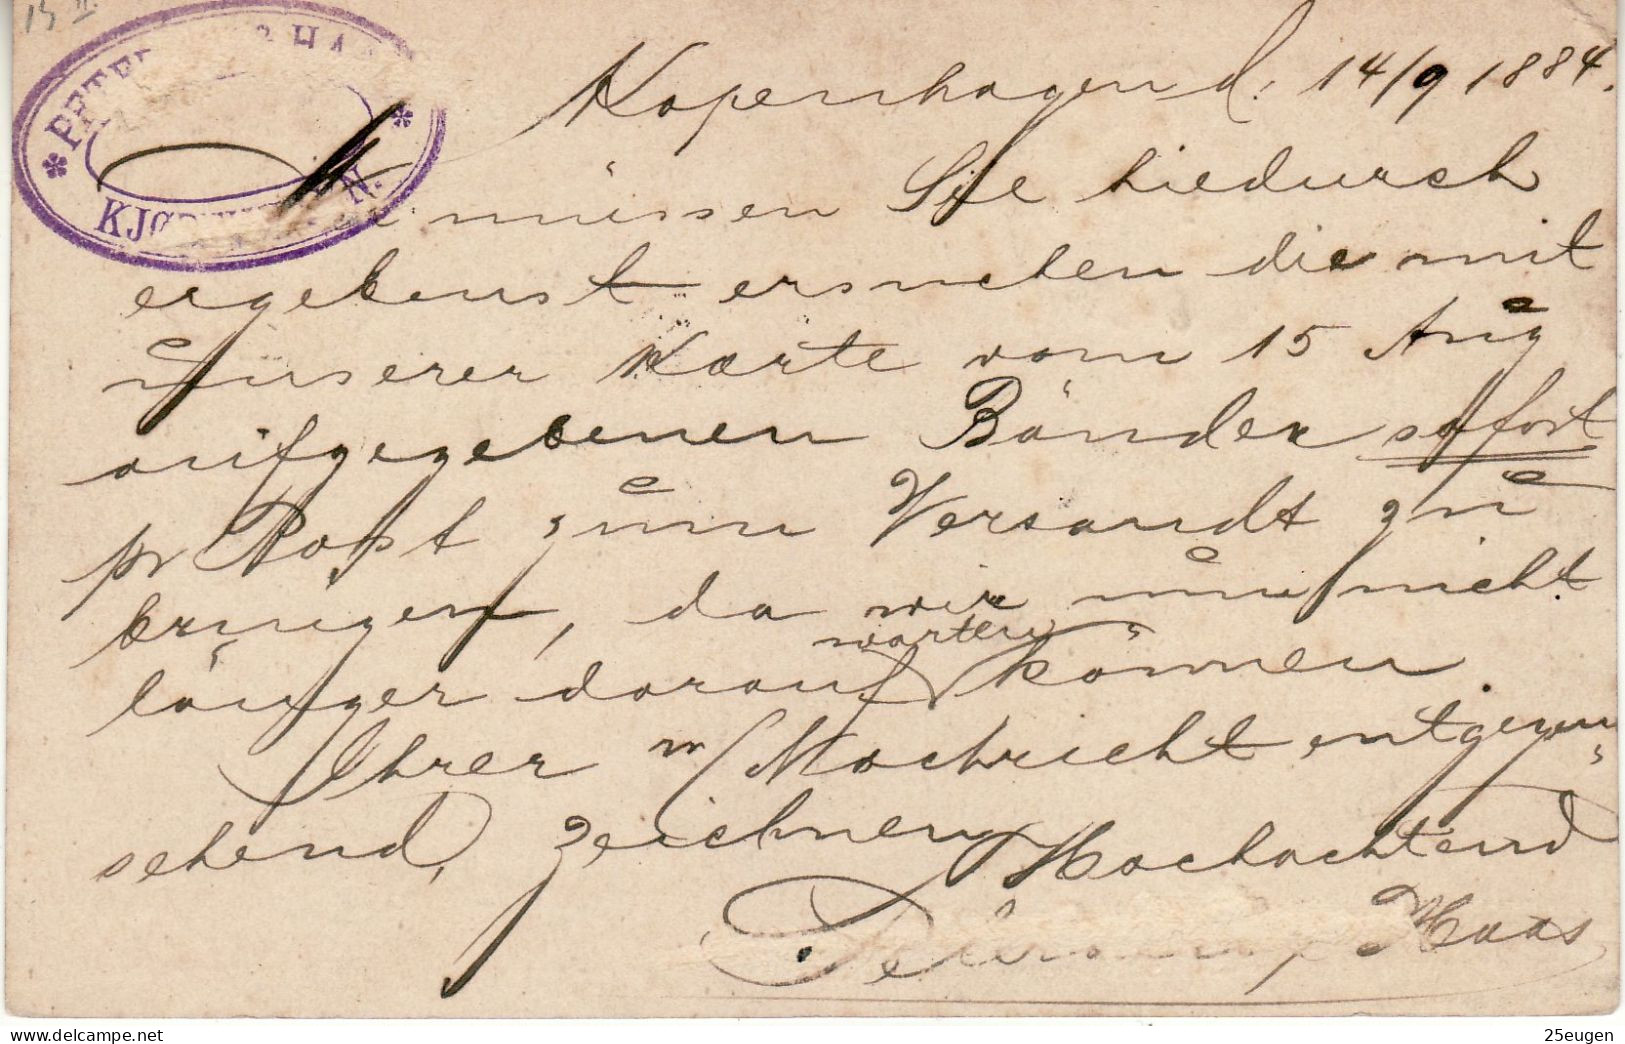 15 II.
PETER HAA
KJØ N.
Kopenhagen d. 14/9 1884.
müssen Sie hiedurch
ergebenst ersuchen die mit
unserer Karte vom 15 Aug
aufgegebenen Bänder sofort
pr Post zum Versandt zu
bringen, da wir nun nicht
länger darauf warten können.
Ihrer Nachricht entgegen
sehend, zeichnen Hochachtend
Haas
25eugen